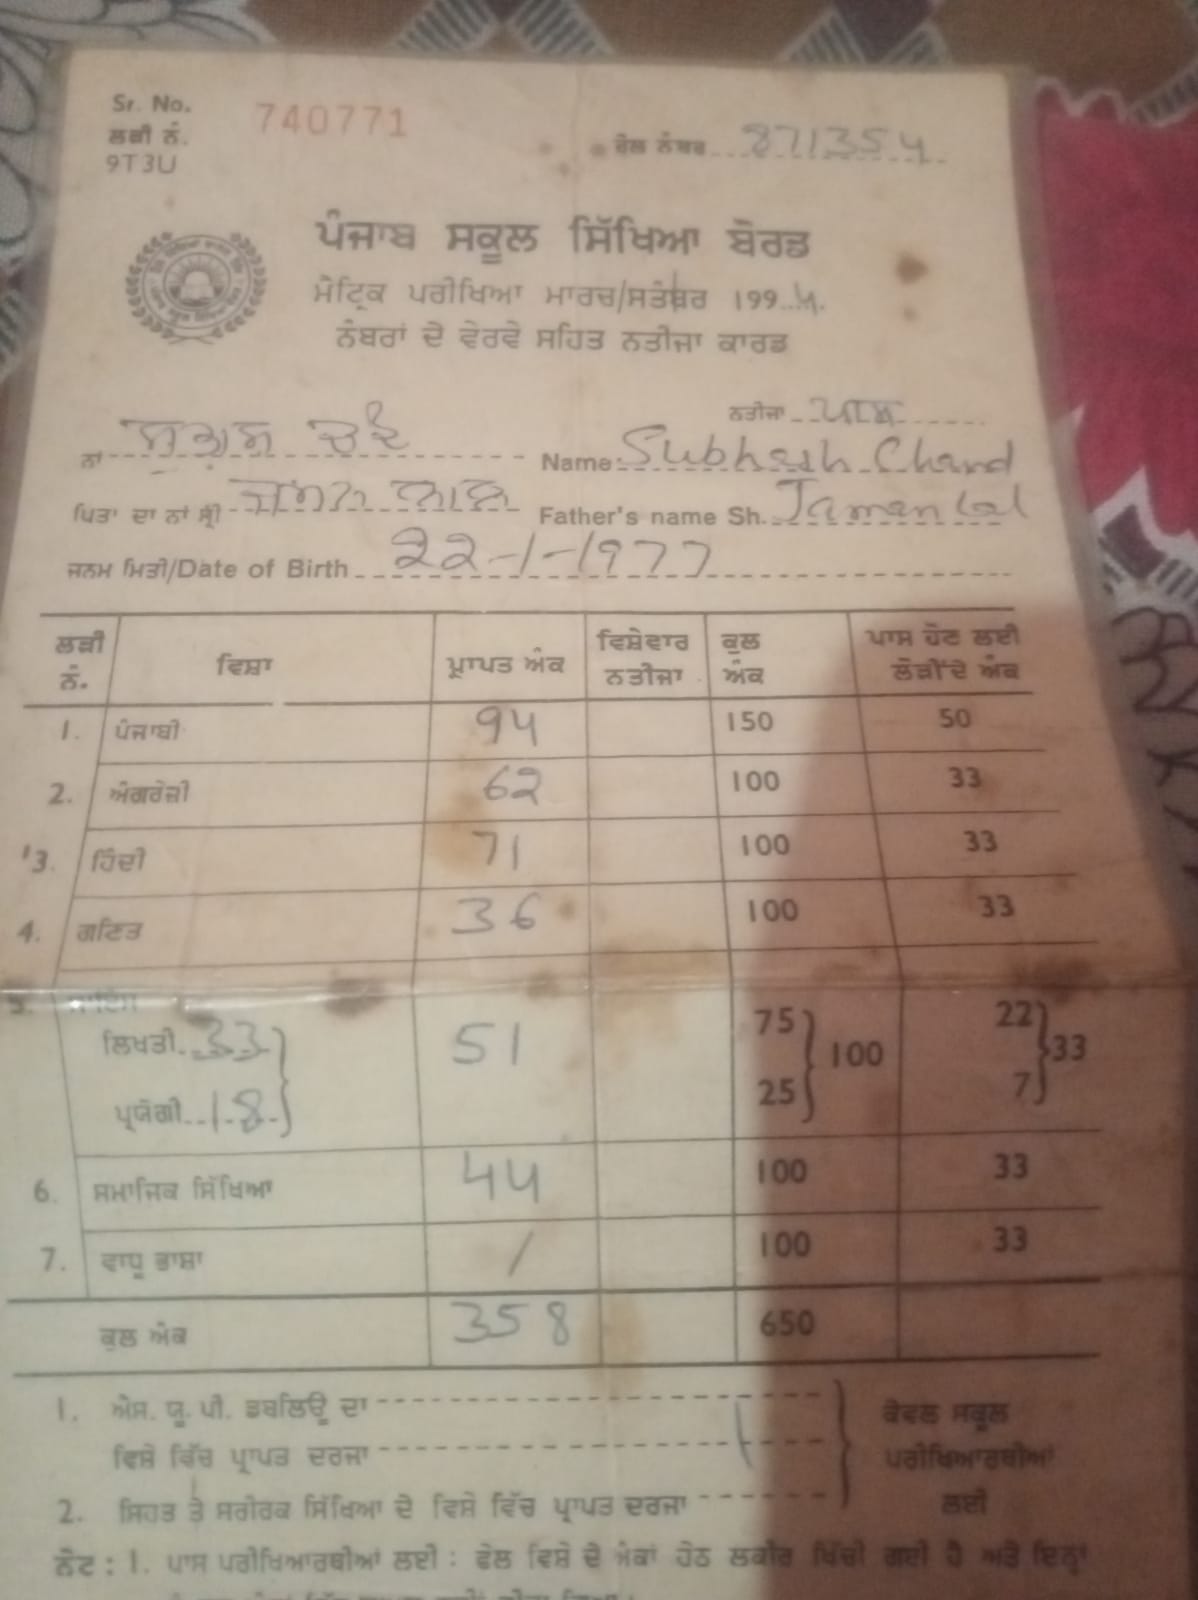 Sr. No. 740771
ਲੜੀ ਨੰ.
9T3U
ਰੋਲ ਨੰਬਰ 871354
ਪੰਜਾਬ ਸਕੂਲ ਸਿੱਖਿਆ ਬੋਰਡ
ਮੈਟ੍ਰਿਕ ਪਰੀਖਿਆ ਮਾਰਚ/ਸਤੰਬਰ 199
ਨੰਬਰਾਂ ਦੇ ਵੇਰਵੇ ਸਹਿਤ ਨਤੀਜਾ ਕਾਰਡ
ਨਤੀਜਾ ਪਾਸ
ਨਾਂ ਸੁਭਾਸ਼ ਚੰਦ Name Subhash Chand
ਪਿਤਾ ਦਾ ਨਾਂ ਸ੍ਰੀ ਜਮਨ ਲਾਲ Father's name Sh. Jaman Lal
ਜਨਮ ਮਿਤੀ/Date of Birth 22-1-1977
ਲੜੀ ਨੰ. ਵਿਸ਼ਾ ਪ੍ਰਾਪਤ ਅੰਕ ਵਿਸ਼ੇਵਾਰ ਨਤੀਜਾ ਕੁਲ ਅੰਕ ਪਾਸ ਹੋਣ ਲਈ ਲੋੜੀਂਦੇ ਅੰਕ
1. ਪੰਜਾਬੀ 94 150 50
2. ਅੰਗਰੇਜ਼ੀ 62 100 33
3. ਹਿੰਦੀ 71 100 33
4. ਗਣਿਤ 36 100 33
5. ਸਾਇੰਸ
ਲਿਖਤੀ 33 51 75 100 22 33
ਪ੍ਰਯੋਗੀ 18 25 7
6. ਸਮਾਜਿਕ ਸਿੱਖਿਆ 44 100 33
7. ਵਾਧੂ ਭਾਸ਼ਾ / 100 33
ਕੁਲ ਅੰਕ 358 650
1. ਐਸ. ਯੂ. ਪੀ. ਡਬਲਿਊ ਦਾ ਕੇਵਲ ਸਕੂਲ
ਵਿਸ਼ੇ ਵਿੱਚ ਪ੍ਰਾਪਤ ਦਰਜਾ ਪਰੀਖਿਆਰਥੀਆਂ
2. ਸਿਹਤ ਤੇ ਸਰੀਰਕ ਸਿੱਖਿਆ ਦੇ ਵਿਸ਼ੇ ਵਿੱਚ ਪ੍ਰਾਪਤ ਦਰਜਾ ਲਈ
ਨੋਟ : 1. ਪਾਸ ਪਰੀਖਿਆਰਥੀਆਂ ਲਈ : ਫੇਲ ਵਿਸ਼ੇ ਦੇ ਅੰਕਾਂ ਹੇਠ ਲਕੀਰ ਖਿੱਚੀ ਗਈ ਹੈ ਅਤੇ ਇਨ੍ਹਾਂ